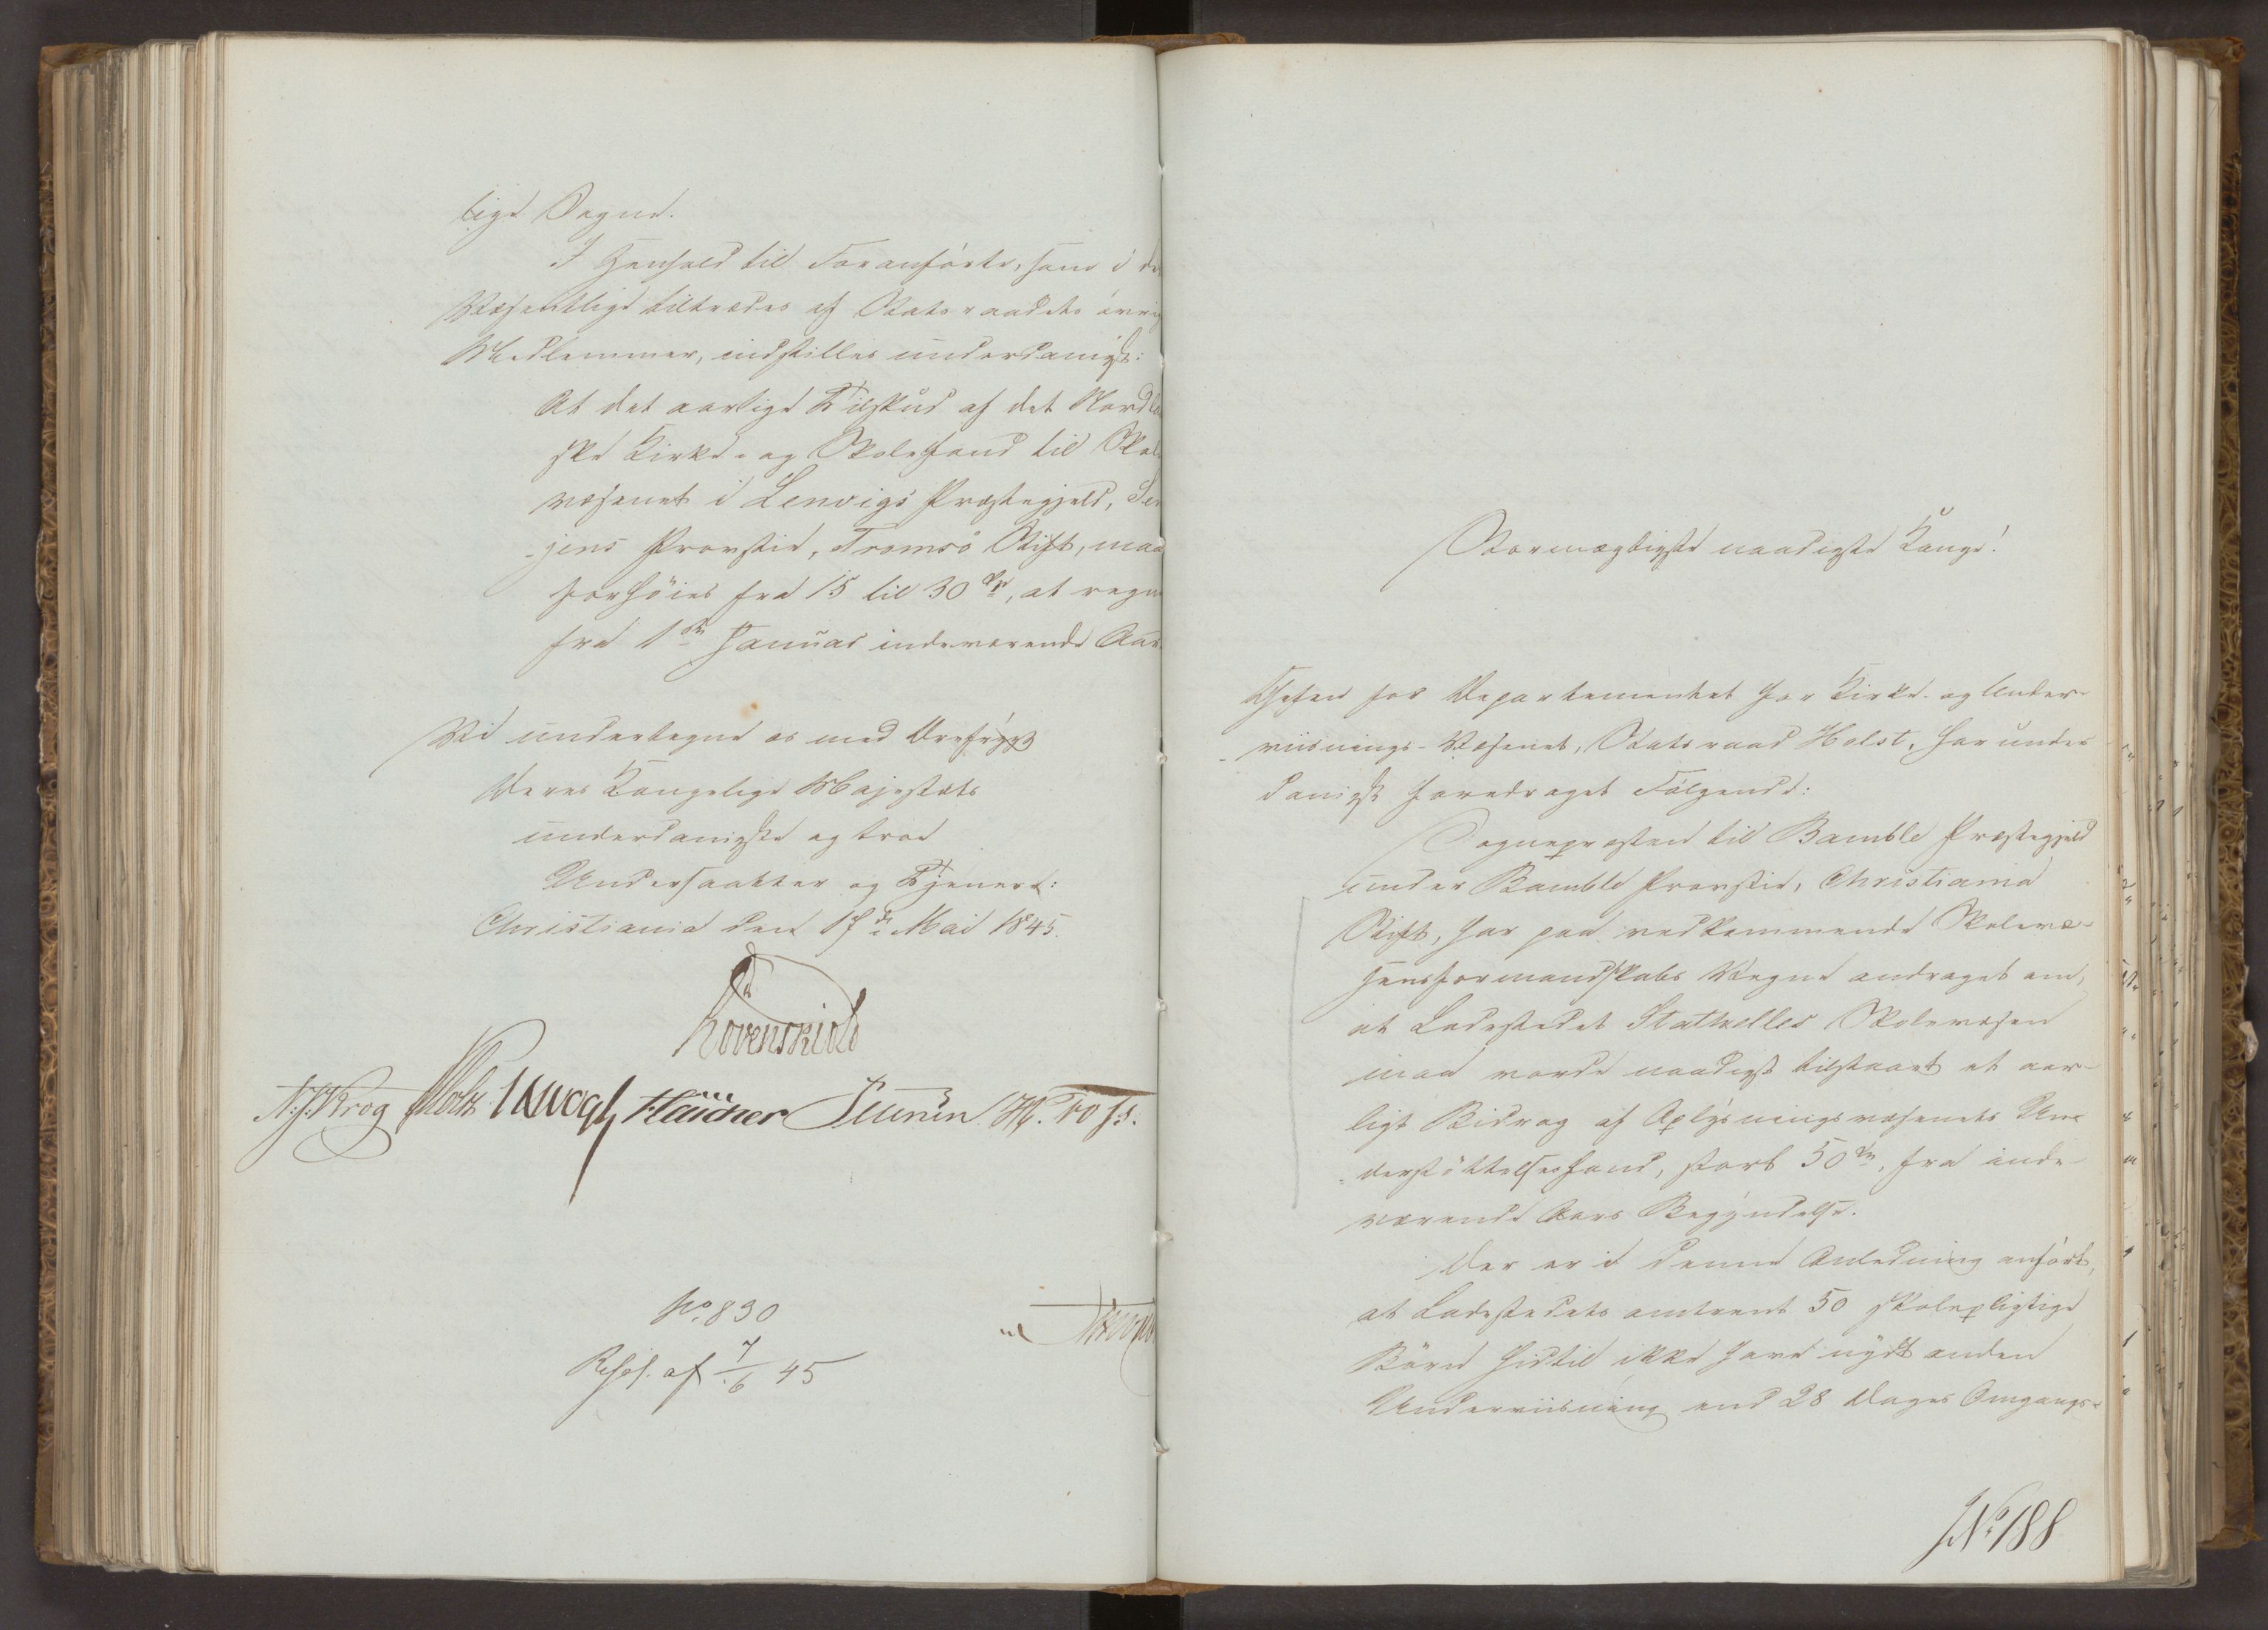 lige Sogne.
I Henhold til Foranførte, som i de
Væsentlige tiltrædes af Statsraadets øvrig
Medlemmer, indstilles underdanigst:
At det aarlige Tilskud af det Nordla
ske Kirke- og Skolefond til Skol
væsenet i Lenvigs Præstegjeld, Sen
jens Provstie, Tromsø Stift, maa
forhøies fra 15 til 30 Spd, at regn
fra 1ste Januar indeværende Aar.
Vi undertegne os med Ærefrygt
Deres Kongelige Majestæts
underdanigste og troe
Undersaatter og Tjenere:
Christiania den 17de Mai 1845.
Løvenskiold
N. J. Krog Holst J H Vogt Fleischer Petersen
No. 890
Resol. af 7/6 45
Stormægtigste naadigste Konge!
Chefen for Departementet for Kirke- og Under-
viisnings-Væsenet, Statsraad Holst, har under
danigst foredraget Følgende:
Sognepræsten til Bamble Præstegjeld
under Bamble Provstie, Christiania
Stift, har paa vedkommende Skolevæ-
sensformandskabs Vegne andraget om,
at Ladestedet Stathelles Skolevæsen
maa vorde naadigst tilstaaet et aar-
ligt Bidrag af Oplysningsvæsenets Un-
derstøttelsesfond, stort 50 Spd, fra inde-
værende Aars Begyndelse.
Der er i denne Anledning anført,
at Ladestedets omtrent 50 skolepligtige
Børn hidtil ikke have nydt anden
Underviisning end 28 Dages Omgangs-
No 188